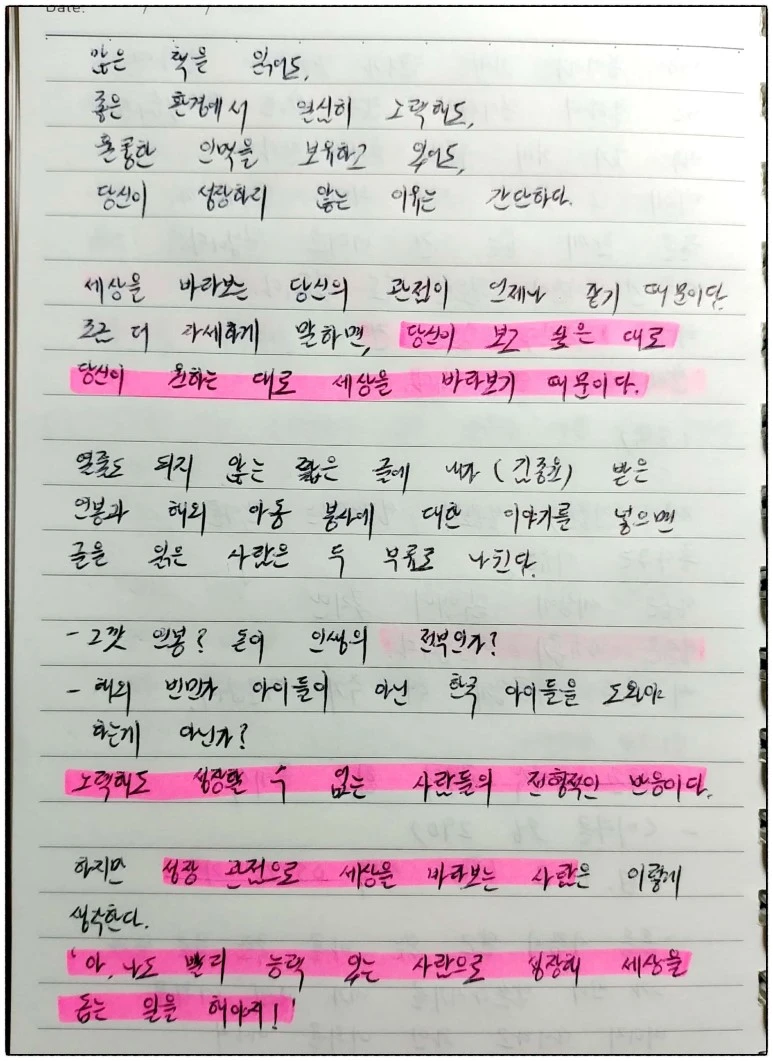 Date: / /
많은 책을 읽어도,
좋은 환경에서 열심히 노력해도,
훌륭한 인맥을 보유하고 있어도,
당신이 성장하지 않는 이유는 간단하다.
세상을 바라보는 당신의 관점이 언제나 같기 때문이다.
조금 더 자세하게 말하면, 당신이 보고 싶은 대로
당신이 원하는 대로 세상을 바라보기 때문이다.
열줄도 되지 않는 짧은 글에 내가 (김종원) 받은
연봉과 해외 아동 봉사에 대한 이야기를 넣으면
글을 읽은 사람은 두 부류로 나뉜다.
- 그깟 연봉? 돈이 인생의 전부인가?
- 해외 빈민가 아이들이 아닌 한국 아이들을 도와야
하는게 아닌가?
노력해도 성장할 수 없는 사람들의 전형적인 반응이다.
하지만 성장 관점으로 세상을 바라보는 사람은 이렇게
생각한다.
'아, 나도 빨리 능력 있는 사람으로 성장해 세상을
돕는 일을 해야지!'